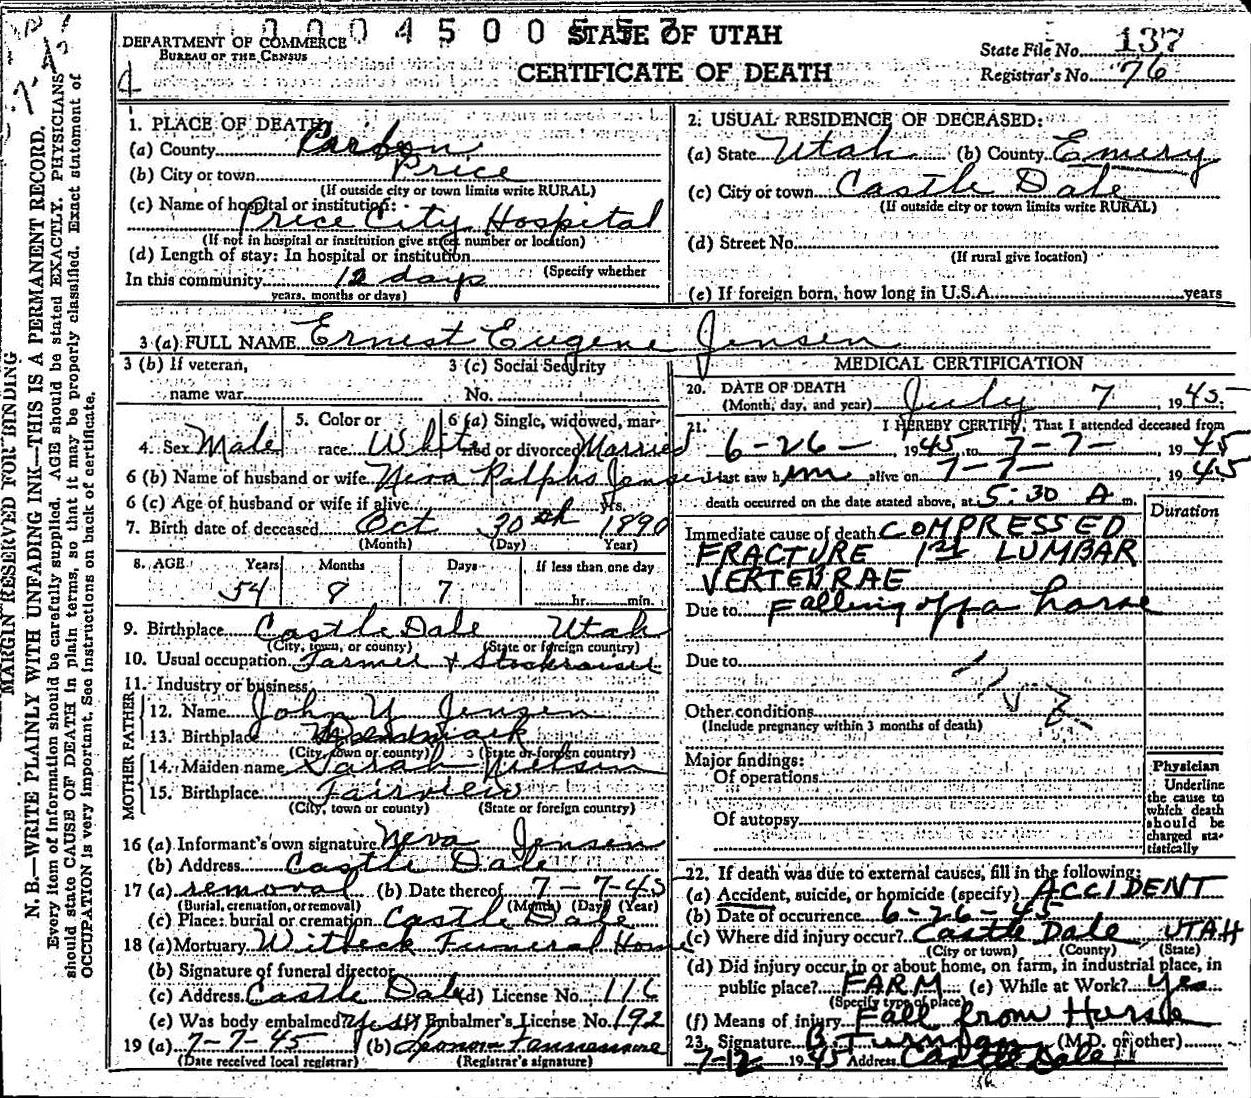 DEPARTMENT OF COMMERCE
BUREAU OF THE CENSUS
STATE OF UTAH
CERTIFICATE OF DEATH
State File No. 137
Registrar's No. 76
MARGIN RESERVED FOR BINDING
N. B.—WRITE PLAINLY WITH UNFADING INK—THIS IS A PERMANENT RECORD.
Every item of information should be carefully supplied. AGE should be stated EXACTLY. PHYSICIANS
should state CAUSE OF DEATH in plain terms, so that it may be properly classified. Exact statement of
OCCUPATION is very important. See instructions on back of certificate.
1. PLACE OF DEATH
(a) County Carbon
(b) City or town Price
(If outside city or town limits write RURAL)
(c) Name of hospital or institution:
Price City Hospital
(If not in hospital or institution give street number or location)
(d) Length of stay: In hospital or institution
(Specify whether
In this community 12 days
years, months or days)
2. USUAL RESIDENCE OF DECEASED:
(a) State Utah (b) County Emery
(c) City or town Castle Dale
(If outside city or town limits write RURAL)
(d) Street No.
(If rural give location)
(e) If foreign born, how long in U.S.A. years
3 (a) FULL NAME Ernest Eugene Jensen
3 (b) If veteran,
name war
3 (c) Social Security
No.
4. Sex Male
5. Color or
race White
6 (a) Single, widowed, mar-
ried or divorced Married
6 (b) Name of husband or wife Neva Ralphs Jensen
6 (c) Age of husband or wife if alive yrs.
7. Birth date of deceased Oct 30th 1890
(Month) (Day) Year)
8. AGE Years Months Days If less than one day
54 8 7 hr. min.
9. Birthplace Castle Dale Utah
(City, town, or county) (State or foreign country)
10. Usual occupation Farmer & Stockraiser
11. Industry or business
FATHER
12. Name John Y Jensen
13. Birthplace Denmark
(City, town or county) (State or foreign country)
MOTHER
14. Maiden name Sarah Nielsen
15. Birthplace Fairview
(City, town or county) (State or foreign country)
16 (a) Informant's own signature Neva Jensen
(b) Address Castle Dale
17 (a) removal (b) Date thereof 7-7-45
(Burial, cremation, or removal) (Month) (Day) (Year)
(c) Place: burial or cremation Castle Dale
18 (a) Mortuary Witbeck Funeral Home
(b) Signature of funeral director
(c) Address Castle Dale (d) License No. 116
(e) Was body embalmed? Yes (f) Embalmer's License No. 192
19 (a) 7-7-45 (b)
(Date received local registrar) (Registrar's signature)
MEDICAL CERTIFICATION
20. DATE OF DEATH
(Month, day, and year) July 7, 1945.
21. I HEREBY CERTIFY, That I attended deceased from
6-26-, 1945, to 7-7-, 1945
I last saw him alive on 7-7-, 1945
death occurred on the date stated above, at 5:30 A m.
Duration
Immediate cause of death COMPRESSED
FRACTURE 1st LUMBAR
VERTEBRAE
Due to Falling off a horse
Due to
Other conditions
(Include pregnancy within 3 months of death)
Major findings:
Of operations
Of autopsy
Physician
Underline
the cause to
which death
should be
charged sta-
tistically
22. If death was due to external causes, fill in the following:
(a) Accident, suicide, or homicide (specify) ACCIDENT
(b) Date of occurrence 6-26-45
(c) Where did injury occur? Castle Dale UTAH
(City or town) (County) (State)
(d) Did injury occur in or about home, on farm, in industrial place, in
public place? FARM (e) While at Work? Yes
(Specify type of place)
(f) Means of injury Fall from Horse
23. Signature (M.D. or other)
7-12 1945 Address Castle Dale